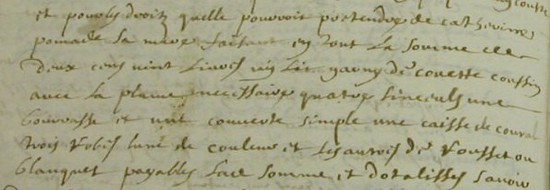 et pour les droitz quelle pouvoit pretendre de catherine
pomade sa mere faisant en tout la somme de
deux cens vint livres ung lit garny de couette coussin
avec sa plume necessaire quatre linceuls une
bourrasse et une couverte simple une caisse de
trois robes lune de couleur et les autres de rousset ou
blanquet payables lad somme et dotalisses savoir